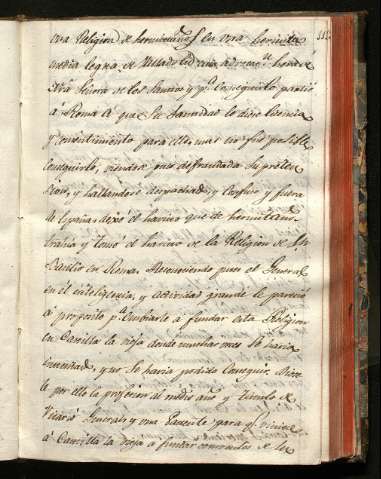 una Religion de hermitaños en una hermita
media legua de
Nrâ Señora de los Santos y pª conseguirlo partio
â Roma â que Su Santidad le diese licencia
y consentimiento para ello, mas no fue posible
conseguirlo, viendose pues defraudada su preten
sion, y hallandose y confuso y fuera
de España, dexò el havito que de hermitaño
trahia y tomò el havito de la Religion de Sn
Basilio en Roma. Reconociendo pues el General
en él inteligencia, y actividad grande le pareciò
â proposito pª embiarle â fundar esta Religion
en Castilla la vieja donde muchas veces se havia
intentado, y no se havia podido conseguir. Diòse
le por ello la profesion al medio año y titulo de
Vicario General, y una Patente para q viniese
â Castilla la vieja â fundar conventos de los